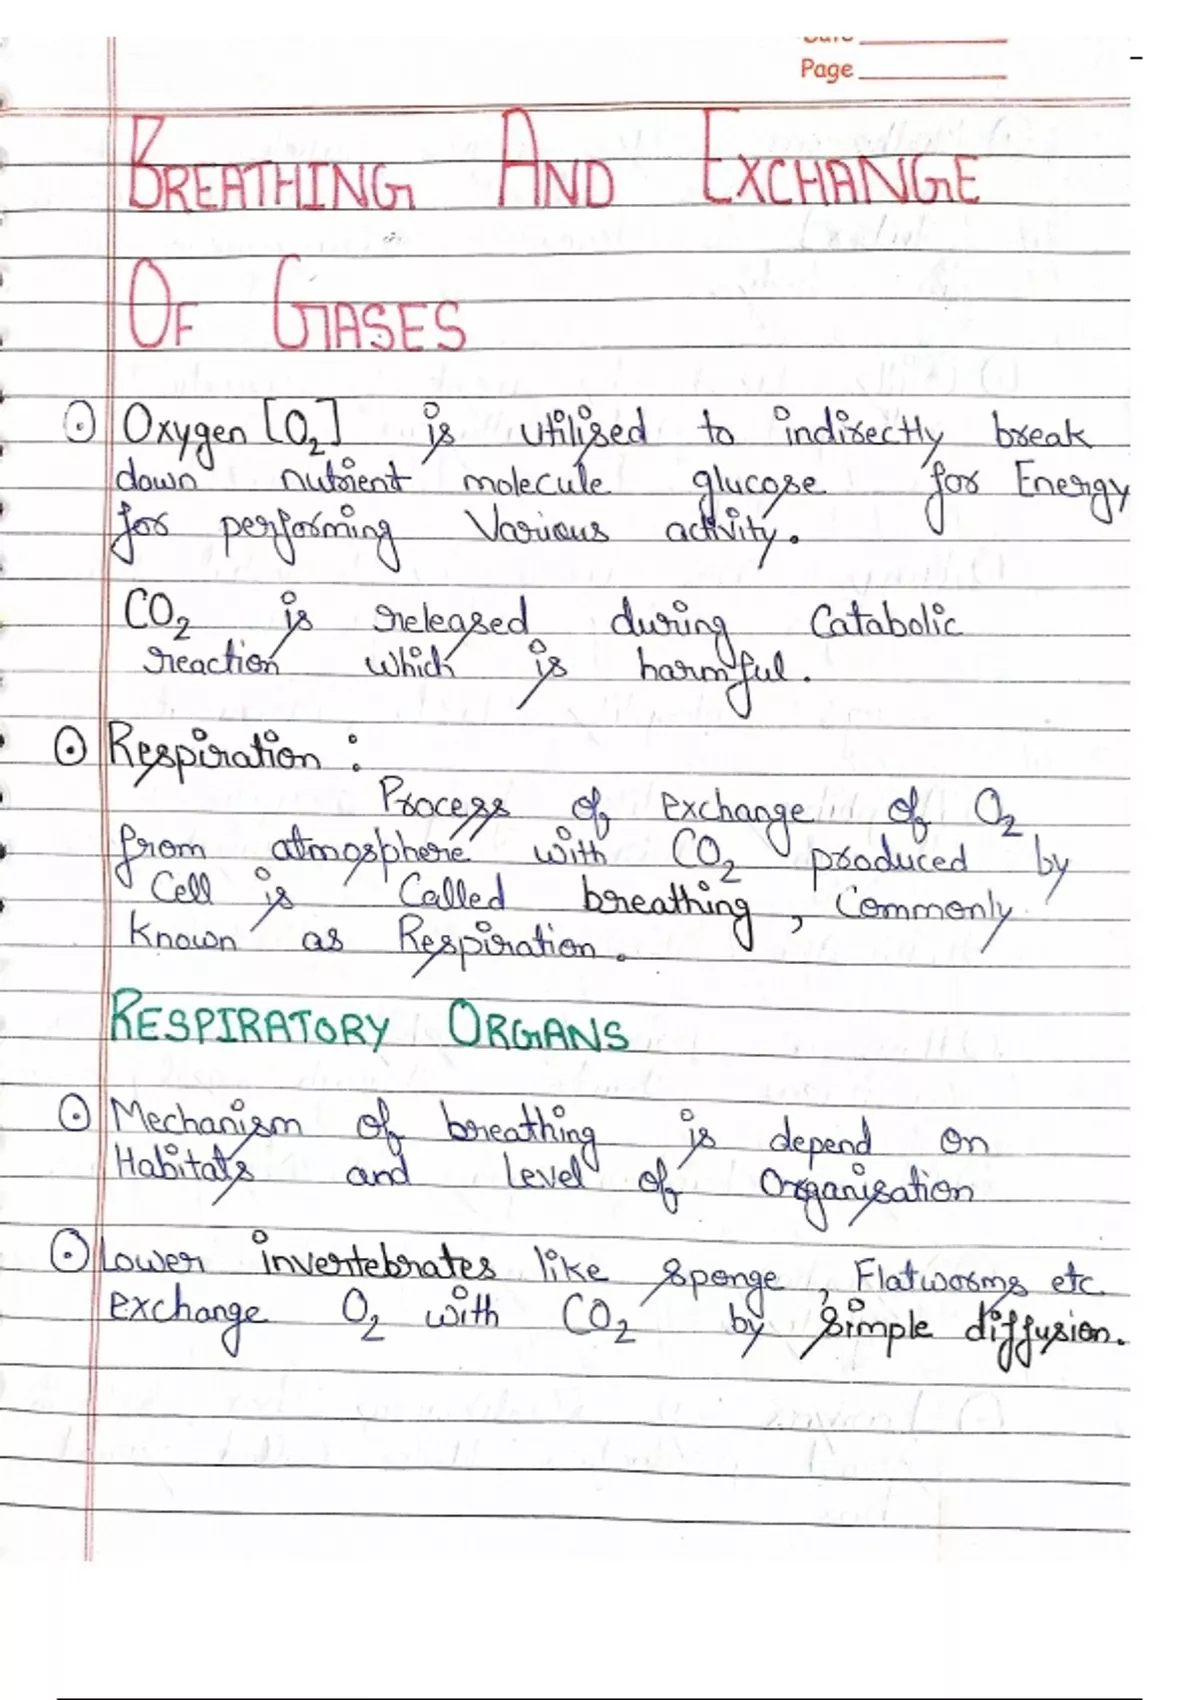 Page
BREATHING AND EXCHANGE
OF GASES
Oxygen [O₂] is utilised to indirectly break
down nutrient molecule glucose for Energy
for performing Various activity.
CO₂ is released during Catabolic
reaction which is harmful.
Respiration :
Process of exchange of O₂
from atmosphere with CO₂ produced by
Cell is Called breathing, Commonly
Known as Respiration.
RESPIRATORY ORGANS
Mechanism of breathing is depend on
Habitats and Level of Organisation
Lower invertebrates like sponge, Flatworms etc.
exchange O₂ with CO₂ by simple diffusion.